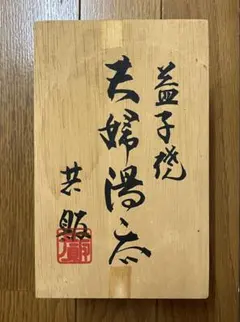 益子焼
夫婦湯呑
共販